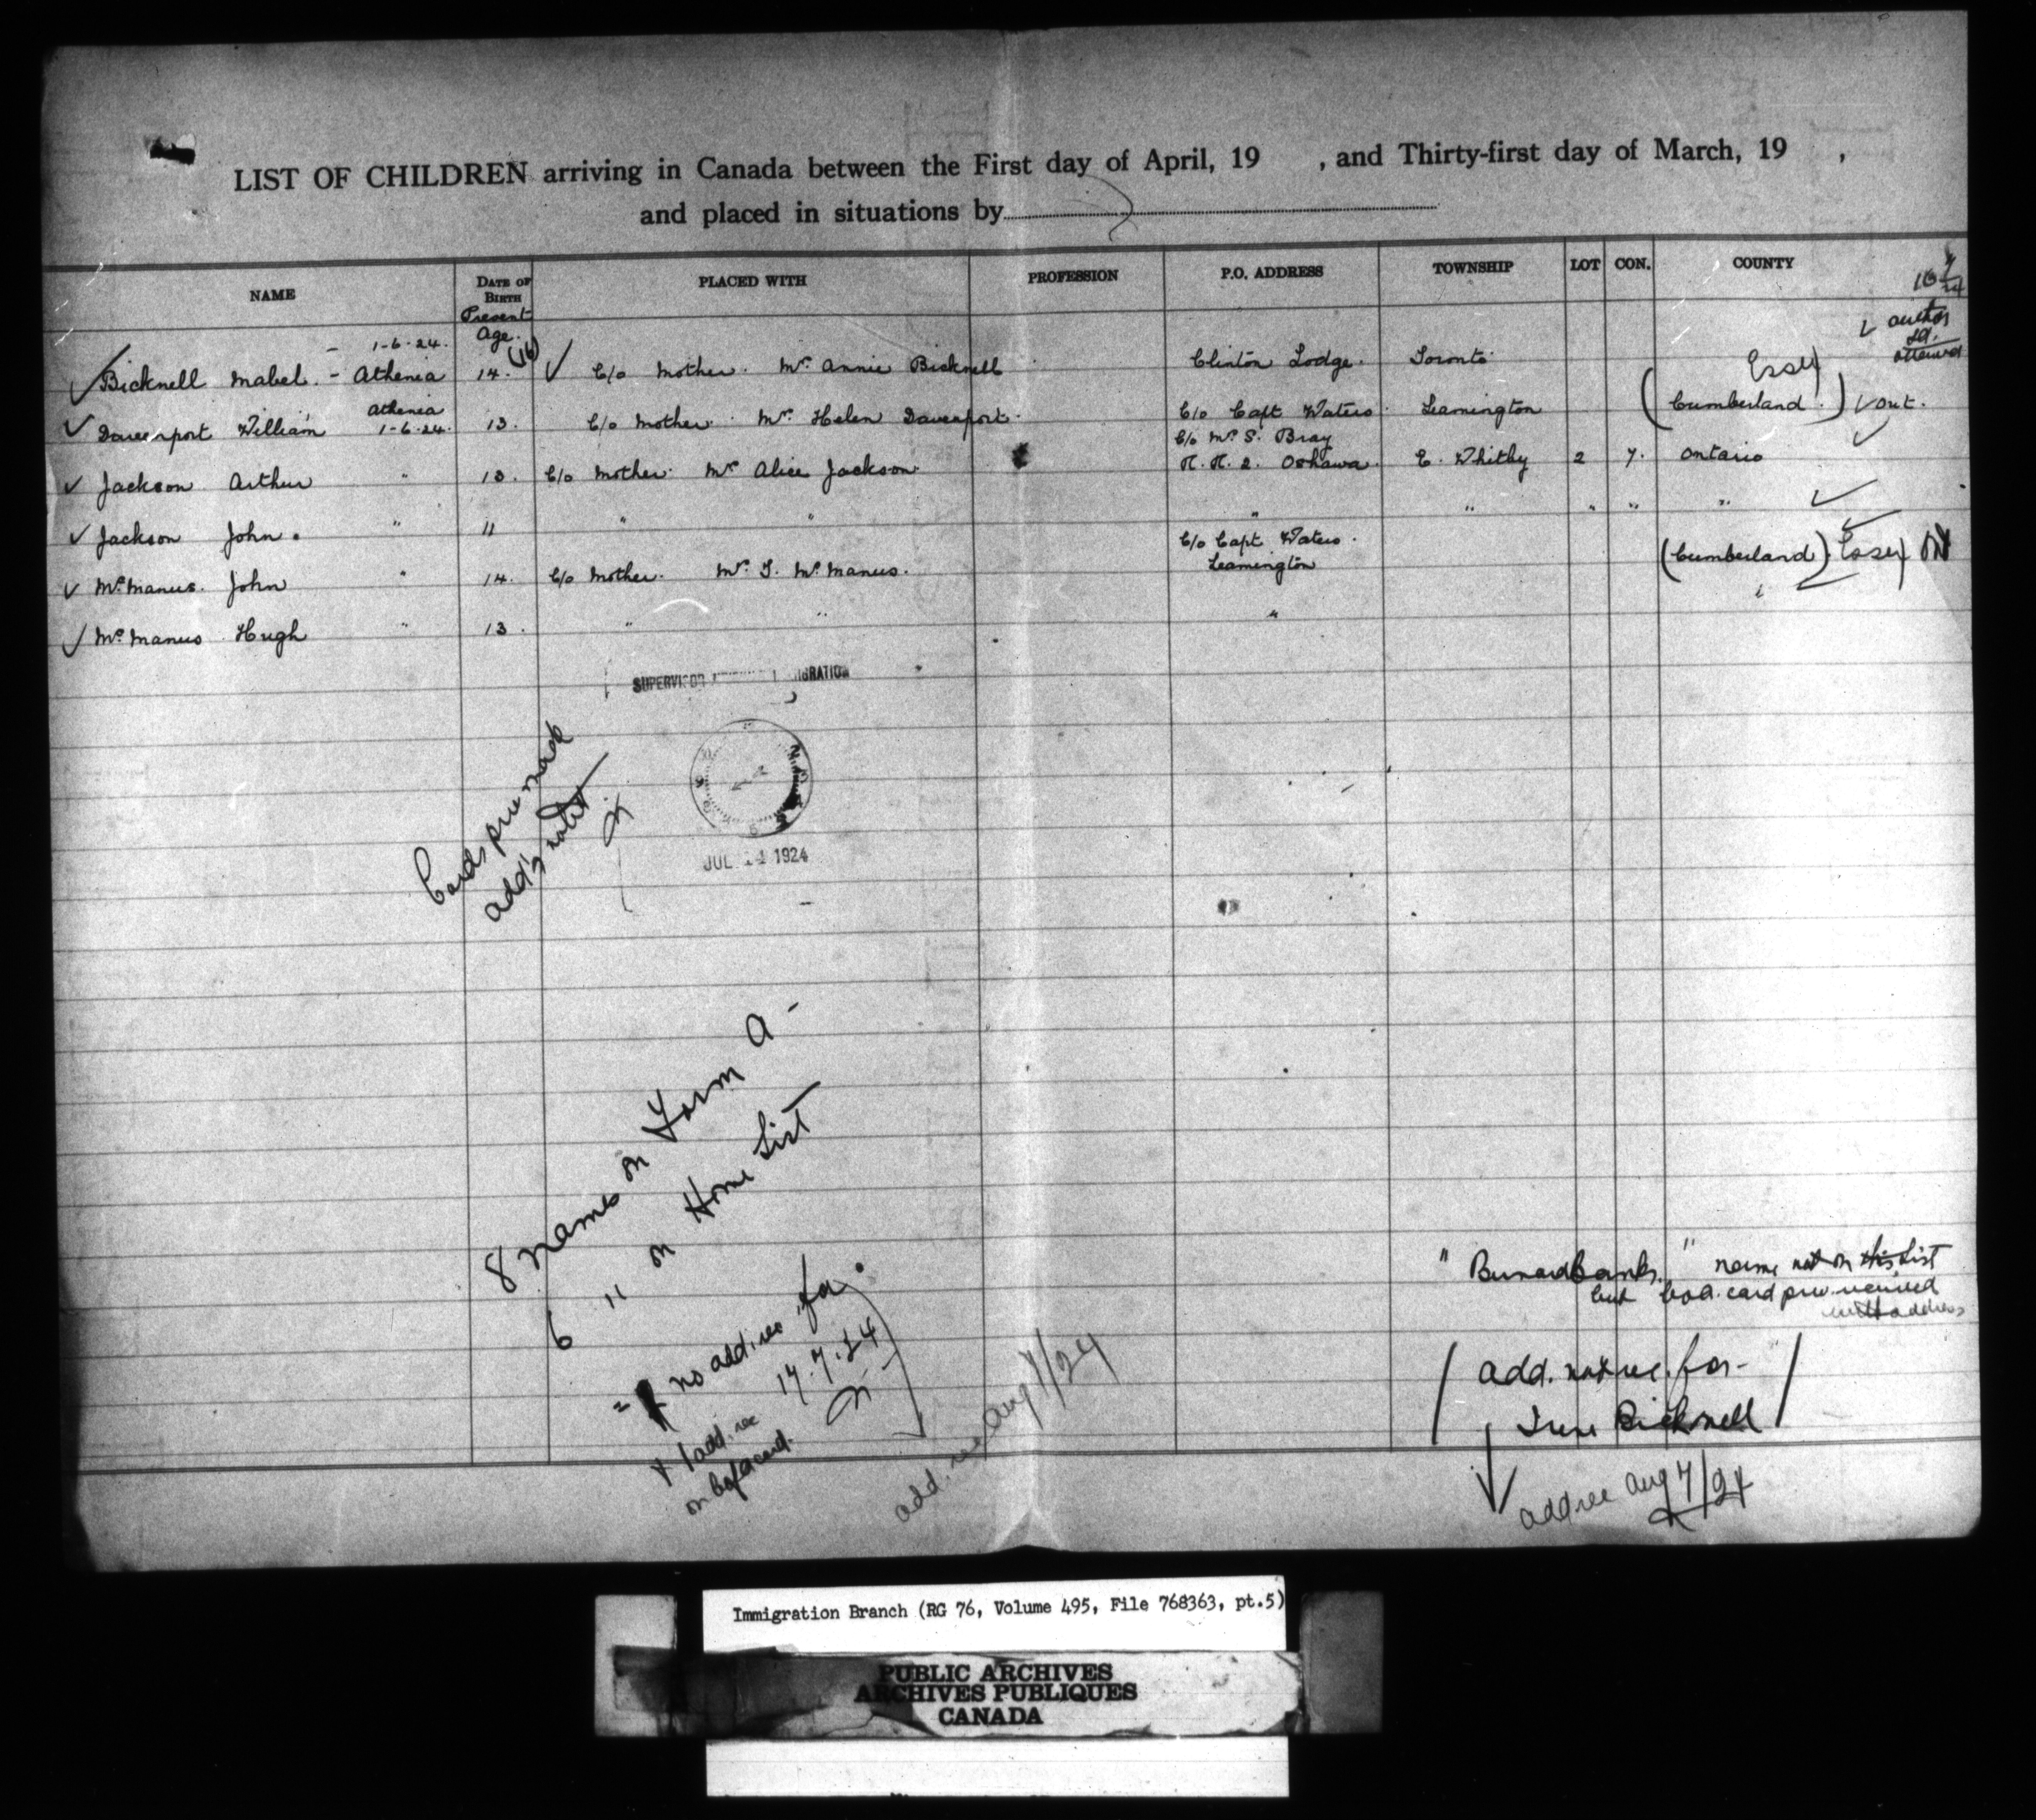 LIST OF CHILDREN arriving in Canada between the First day of April, 19 , and Thirty-first day of March, 19 ,
and placed in situations by
NAME DATE OF BIRTH PLACED WITH PROFESSION P.O. ADDRESS TOWNSHIP LOT CON. COUNTY
Present Age.
1-6-24.
Bicknell Mabel. - Athenia 14. (16) C/o Mother. Mrs. Annie Bicknell Clinton Lodge. Toronto.
Essex
Davenport William Athenia 1-6-24. 13. C/o Mother. Mrs. Helen Davenport. C/o Capt Waters. Leamington (Cumberland.) Out.
C/o Mrs S. Bray
Jackson Arthur " 13. C/o Mother. Mrs Alice Jackson. R.R. 2. Oshawa. E. Whitby 2 7. Ontario
Jackson John. " 11 " " " " " " "
C/o Capt Waters.
McManus. John " 14. C/o Mother. Mrs. McManus. Leamington (Cumberland) Essex Ont
McManus Hugh " 13. " " "
SUPERVISOR
JUL 1924
Cards prev made
8 names on Form A -
6 " on Home List
no add. rec for
17.7.24
1 add. rec
add. rec Aug 7/24
" name not on this List
but card prev. received
with address
add. not rec. for -
Irene Bicknell
add rec Aug 7/24
Immigration Branch (RG 76, Volume 495, File 768363, pt.5)
PUBLIC ARCHIVES
ARCHIVES PUBLIQUES
CANADA